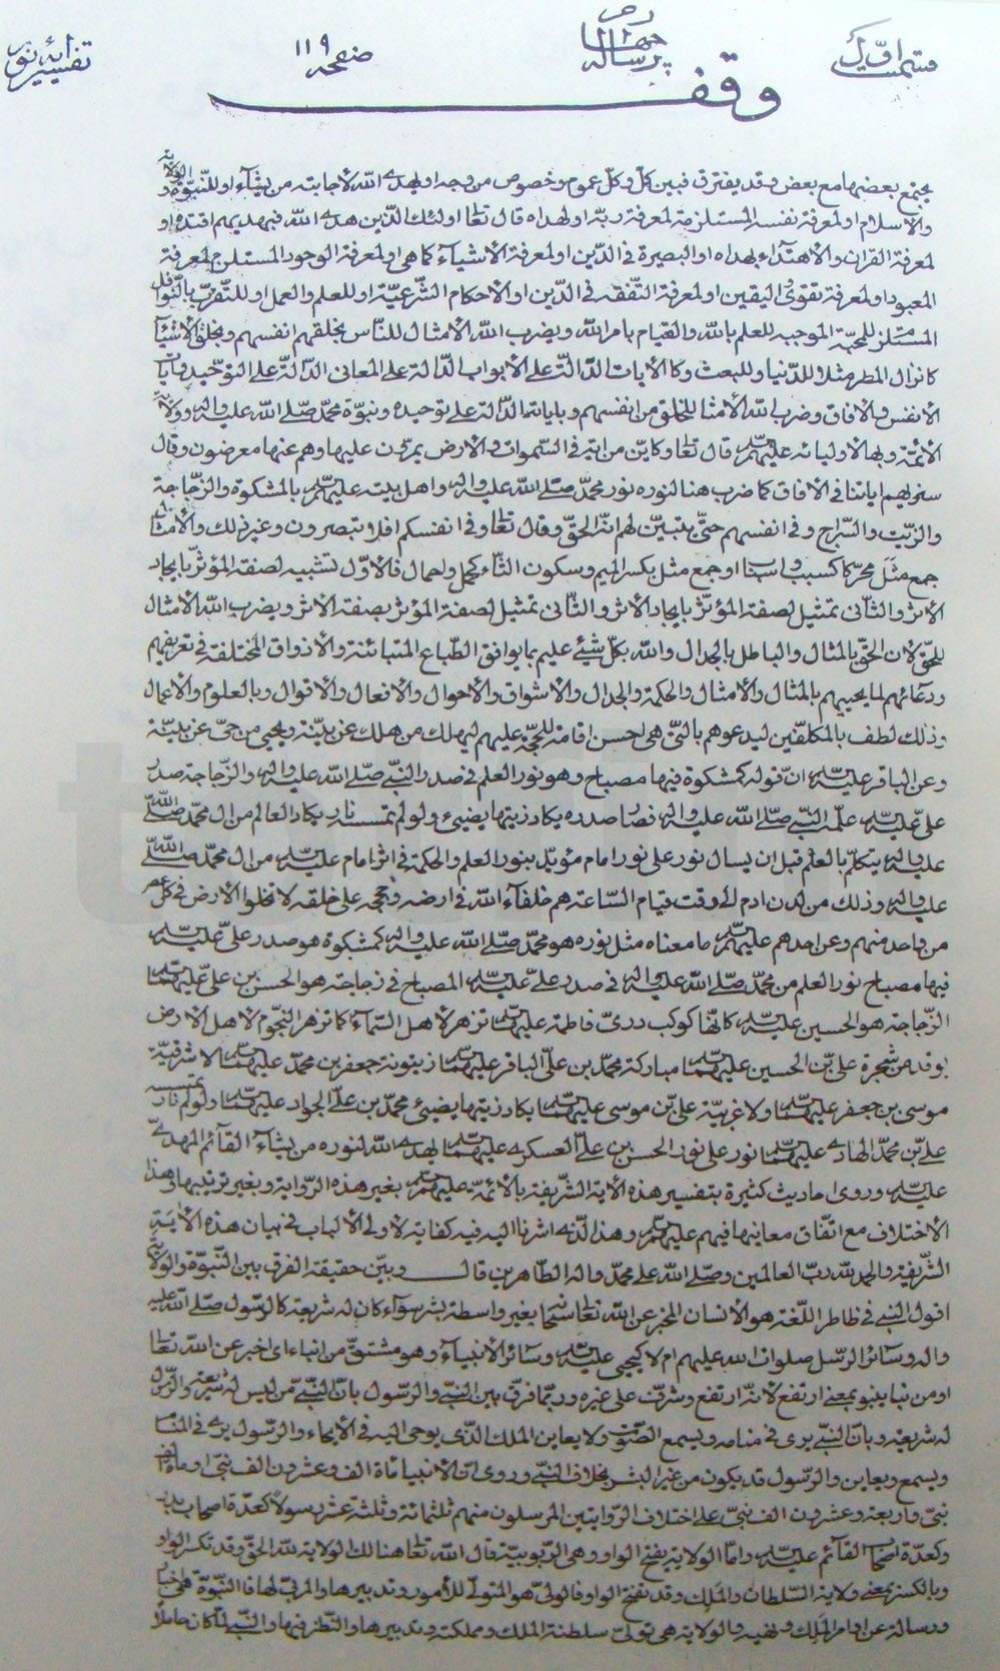 قسمت اول
در
چهار رسالة
صفحه ١١٩
تفسير اية نور
وقف
يجتمع بعضها مع بعض وقد يفترق فبين كل وكل عموم وخصوص من وجه او يهدى الله لاجابته من يشآء او للنبوة والولاية
والاسلام او لمعرفة نفسه المستلزمة لمعرفة ربه او لهداه قال تعالى اولئك الذين هدى الله فبهديهم اقتده او
لمعرفة القران والاهتدآء بهداه او البصيرة فى الدين او لمعرفة الاشيآء كما هى او لمعرفة الوجود المستلزم لمعرفة
المعبود او لمعرفة تقوى اليقين او لمعرفة التفقه فى الدين او الاحكام الشرعية او للعلم والعمل او للتقرب بالنوافل
المستلزم للمحبة الموجبه للعلم بالله والقيام بامر الله ويضرب الله الامثال للناس بخلقهم انفسهم وبخلق الاشيآء
كانزال المطر مثلا للدنيا وللبعث وكالآيات الدالة على الابواب الدالة على المعانى الدالة على التوحيد بآيات
الانفس والافاق وضرب الله الامثال للخلق من انفسهم وباياته الدالة على توحيده ونبوة محمد صلى الله عليه واله وولاية
الأئمة وبها لاوليائه عليهم السلام قال تعالى وكاين من اية فى السموات والارض يمرون عليها وهم عنها معرضون وقال
سنريهم اياتنا فى الافاق كما ضرب هنا لنوره نور محمد صلى الله عليه واله واهل بيته عليهم السلام بالمشكوة والزجاجة
والزيت والسراج وفى انفسهم حتى يتبين لهم انه الحق وقال تعالى وفى انفسكم افلا تبصرون وغير ذلك والامثال
جمع مثل محركا كسبب واسباب او جمع مثل بكسر الميم وسكون الثآء كحمل واحمال فالاول تشبيه لصفة المؤثر بايجاد
الاثر والثانى تمثيل لصفة المؤثر بايجاد الاثر والثانى تمثيل لصفة المؤثر بصفة الاثر ويضرب الله الامثال
للحق لان الحق بالمثال والباطل بالجدال والله بكل شئ عليم بما يوافق الطباع المتباينة والاذواق المختلفة فى تعريفهم
ودعائهم لما يحييهم بالمثال والامثال والحكمة والجدال والاشواق والاحوال والافعال والاقوال وبالعلوم والاعمال
وذلك لطف بالمكلفين ليدعوهم بالتى هى احسن اقامة للحجة عليهم ليهلك من هلك عن بينة ويحيى من حى عن بينة
وعن الباقر عليه السلام ان قوله كمشكوة فيها مصباح وهو نور العلم فى صدر النبى صلى الله عليه واله والزجاجة صدر
على عليه السلام علمه النبى صلى الله عليه واله فصار صدره يكاد زيتها يضيئ ولو لم تمسسه نار يكاد العالم من ال محمد صلى الله
عليه واله يتكلم بالعلم قبل ان يسال نور على نور امام مؤيد بنور العلم والحكمة فى اثر امام عليه السلام من ال محمد صلى الله
عليه واله وذلك من لدن ادم الى وقت قيام الساعة هم خلفآء الله فى ارضه وحججه على خلقه لا تخلوا الارض فى كل عصر
من واحد منهم وعن احدهم عليهم السلام ما معناه مثل نوره هو محمد صلى الله عليه واله كمشكوة هو صدر على عليه السلام
فيها مصباح نور العلم من محمد صلى الله عليه واله فى صدر على عليه السلام المصباح فى زجاجة هو الحسن بن على عليهما السلام
الزجاجة هو الحسين عليه السلام كانها كوكب درى فاطمة عليها السلام تزهر لاهل السمآء كما تزهر النجوم لاهل الارض
يوقد من شجرة على بن الحسين عليهما السلام مباركة محمد بن على الباقر عليهما السلام زيتونة جعفر بن محمد عليهما السلام لا شرقية
موسى بن جعفر عليهما السلام ولا غربية على بن موسى عليهما السلام يكاد زيتها يضيئ محمد بن على الجواد عليهما السلام ولو لم تمسسه نار
على بن محمد الهادى عليهما السلام نور على نور الحسن بن على العسكرى عليهما السلام يهدى الله لنوره من يشآء القآئم المهدى
عليه السلام وروى احاديث كثيرة بتفسير هذه الاية الشريفة بالائمة عليهم السلام بغير هذه الرواية وبغير ترتيبها وهذا
الاختلاف مع اتفاق معانيها فيهم عليهم السلام وهذا الذى اشرنا اليه فيه كفاية لاولى الالباب فى بيان هذه الآية
الشريفة والحمد لله رب العالمين وصلى الله على محمد واله الطاهرين قال وبين حقيقة الفرق بين النبوة والولاية
اقول النبى فى ظاهر اللغة هو الانسان المخبر عن الله تعالى بغير واسطة بشر سوآء كان له شريعة كالرسول صلى الله عليه
واله وسائر الرسل صلوات الله عليهم ام لا كيحيى عليه السلام وسائر الأنبيآء وهو مشتق من انباء اى اخبر عن الله تعالى
او من نبا ينبو بمعنى ارتفع لانه ارتفع وشرف على غيره وربما فرق بين النبى والرسول بان النبى من ليس له شريعة والرسول
له شريعة وبان النبى يرى فى منامه ويسمع الصوت ولا يعاين الملك الذى يوحى اليه فى الايحاء والرسول يرى فى المنام
ويسمع ويعاين والرسول قد يكون من غير البشر بخلاف النبى وروى ان الانبيا مائة الف وعشرون الف نبى او مائة الف
نبى واربعة وعشرون الف نبى على اختلاف الروايتين المرسلون منهم ثلثمائة وثلثة عشر رسولا كعدة اصحاب بدر
وكعدة اصحاب القآئم عليه السلام واما الولاية بفتح الواو وهى الربوبية قال الله تعالى هنالك الولاية لله الحق وقد تكسر الواو
وبالكسر بمعنى ولاية السلطان والملك وقد تفتح الواو فالولى هو المتولى للأمور وتدبيرها والمربى لها فالنبوة هى اخبار
ورسالة عن اوامر الملك ونهيه والولاية هى تولى سلطنة الملك ومملكته وتدبيرها والنظر فيها والنبى لما كان حاملا